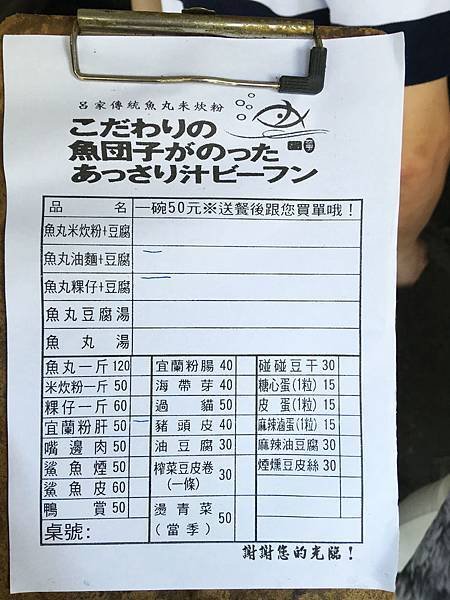 呂家傳統魚丸米炊粉
こだわりの
魚団子がのった
あっさり汁ビーフン
品名 一碗50元※送餐後跟您買單哦！
魚丸米炊粉+豆腐
魚丸油麵+豆腐
魚丸粿仔+豆腐
魚丸豆腐湯
魚丸湯
魚丸一斤 120 宜蘭粉腸 40 碰碰豆干 30
米炊粉一斤 50 海帶芽 40 糖心蛋(1粒) 15
粿仔一斤 60 過貓 50 皮蛋(1粒) 15
宜蘭粉肝 50 豬頭皮 40 麻辣滷蛋(1粒) 15
嘴邊肉 50 油豆腐 30 麻辣油豆腐 30
鯊魚煙 50 榨菜豆皮卷(一條) 30 煙燻豆皮絲 30
鯊魚皮 60
鴨賞 50 燙青菜(當季) 50
桌號:
謝謝您的光臨！